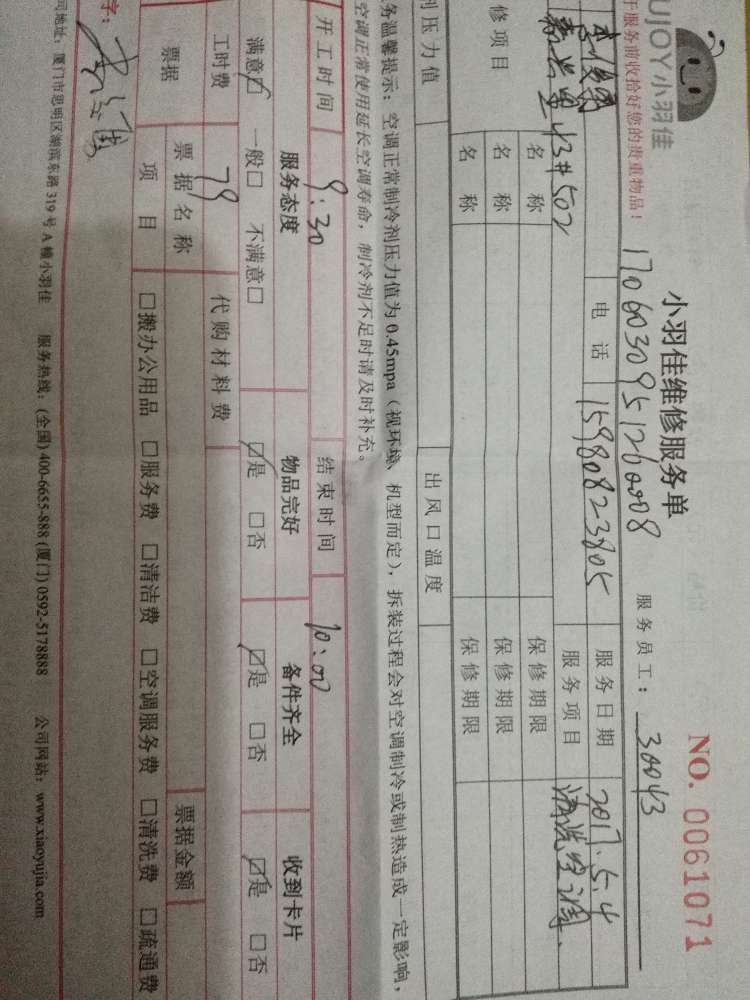 UJOY小羽佳
于服务前收拾好您的贵重物品！
小羽佳维修服务单
NO. 0061071
服务员工： 30043
电话 15980823805 服务日期 2017.5.4
43#502 服务项目 清洗空调
修项目 名称 保修期限
名称 保修期限
名称 保修期限
剂压力值 出风口温度
务温馨提示：空调正常制冷剂压力值为0.45mpa（视环境、机型而定），拆装过程会对空调制冷或制热造成一定影响，
空调正常使用延长空调寿命，制冷剂不足时请及时补充。
开工时间 9:30 结束时间 10:00
服务态度 物品完好 备件齐全 收到卡片
满意☑ 一般□ 不满意□ ☑是 □否 ☑是 □否 ☑是 □否
工时费 79 代购材料费
票据 票据名称 票据金额
项目 □搬办公用品 □服务费 □清洁费 □空调服务费 □清洗费 □疏通费
字：
司地址：厦门市思明区湖滨东路319号A幢小羽佳 服务热线：(全国) 400-6655-888 (厦门) 0592-5178888 公司网站：www.xiaoyujia.com